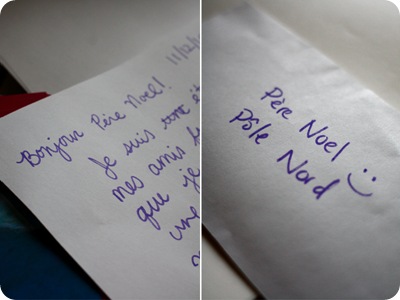 11/12/
Bonjour Père Noel!
Je suis
mes amis
que je
une
Père Noel
Pôle Nord :)